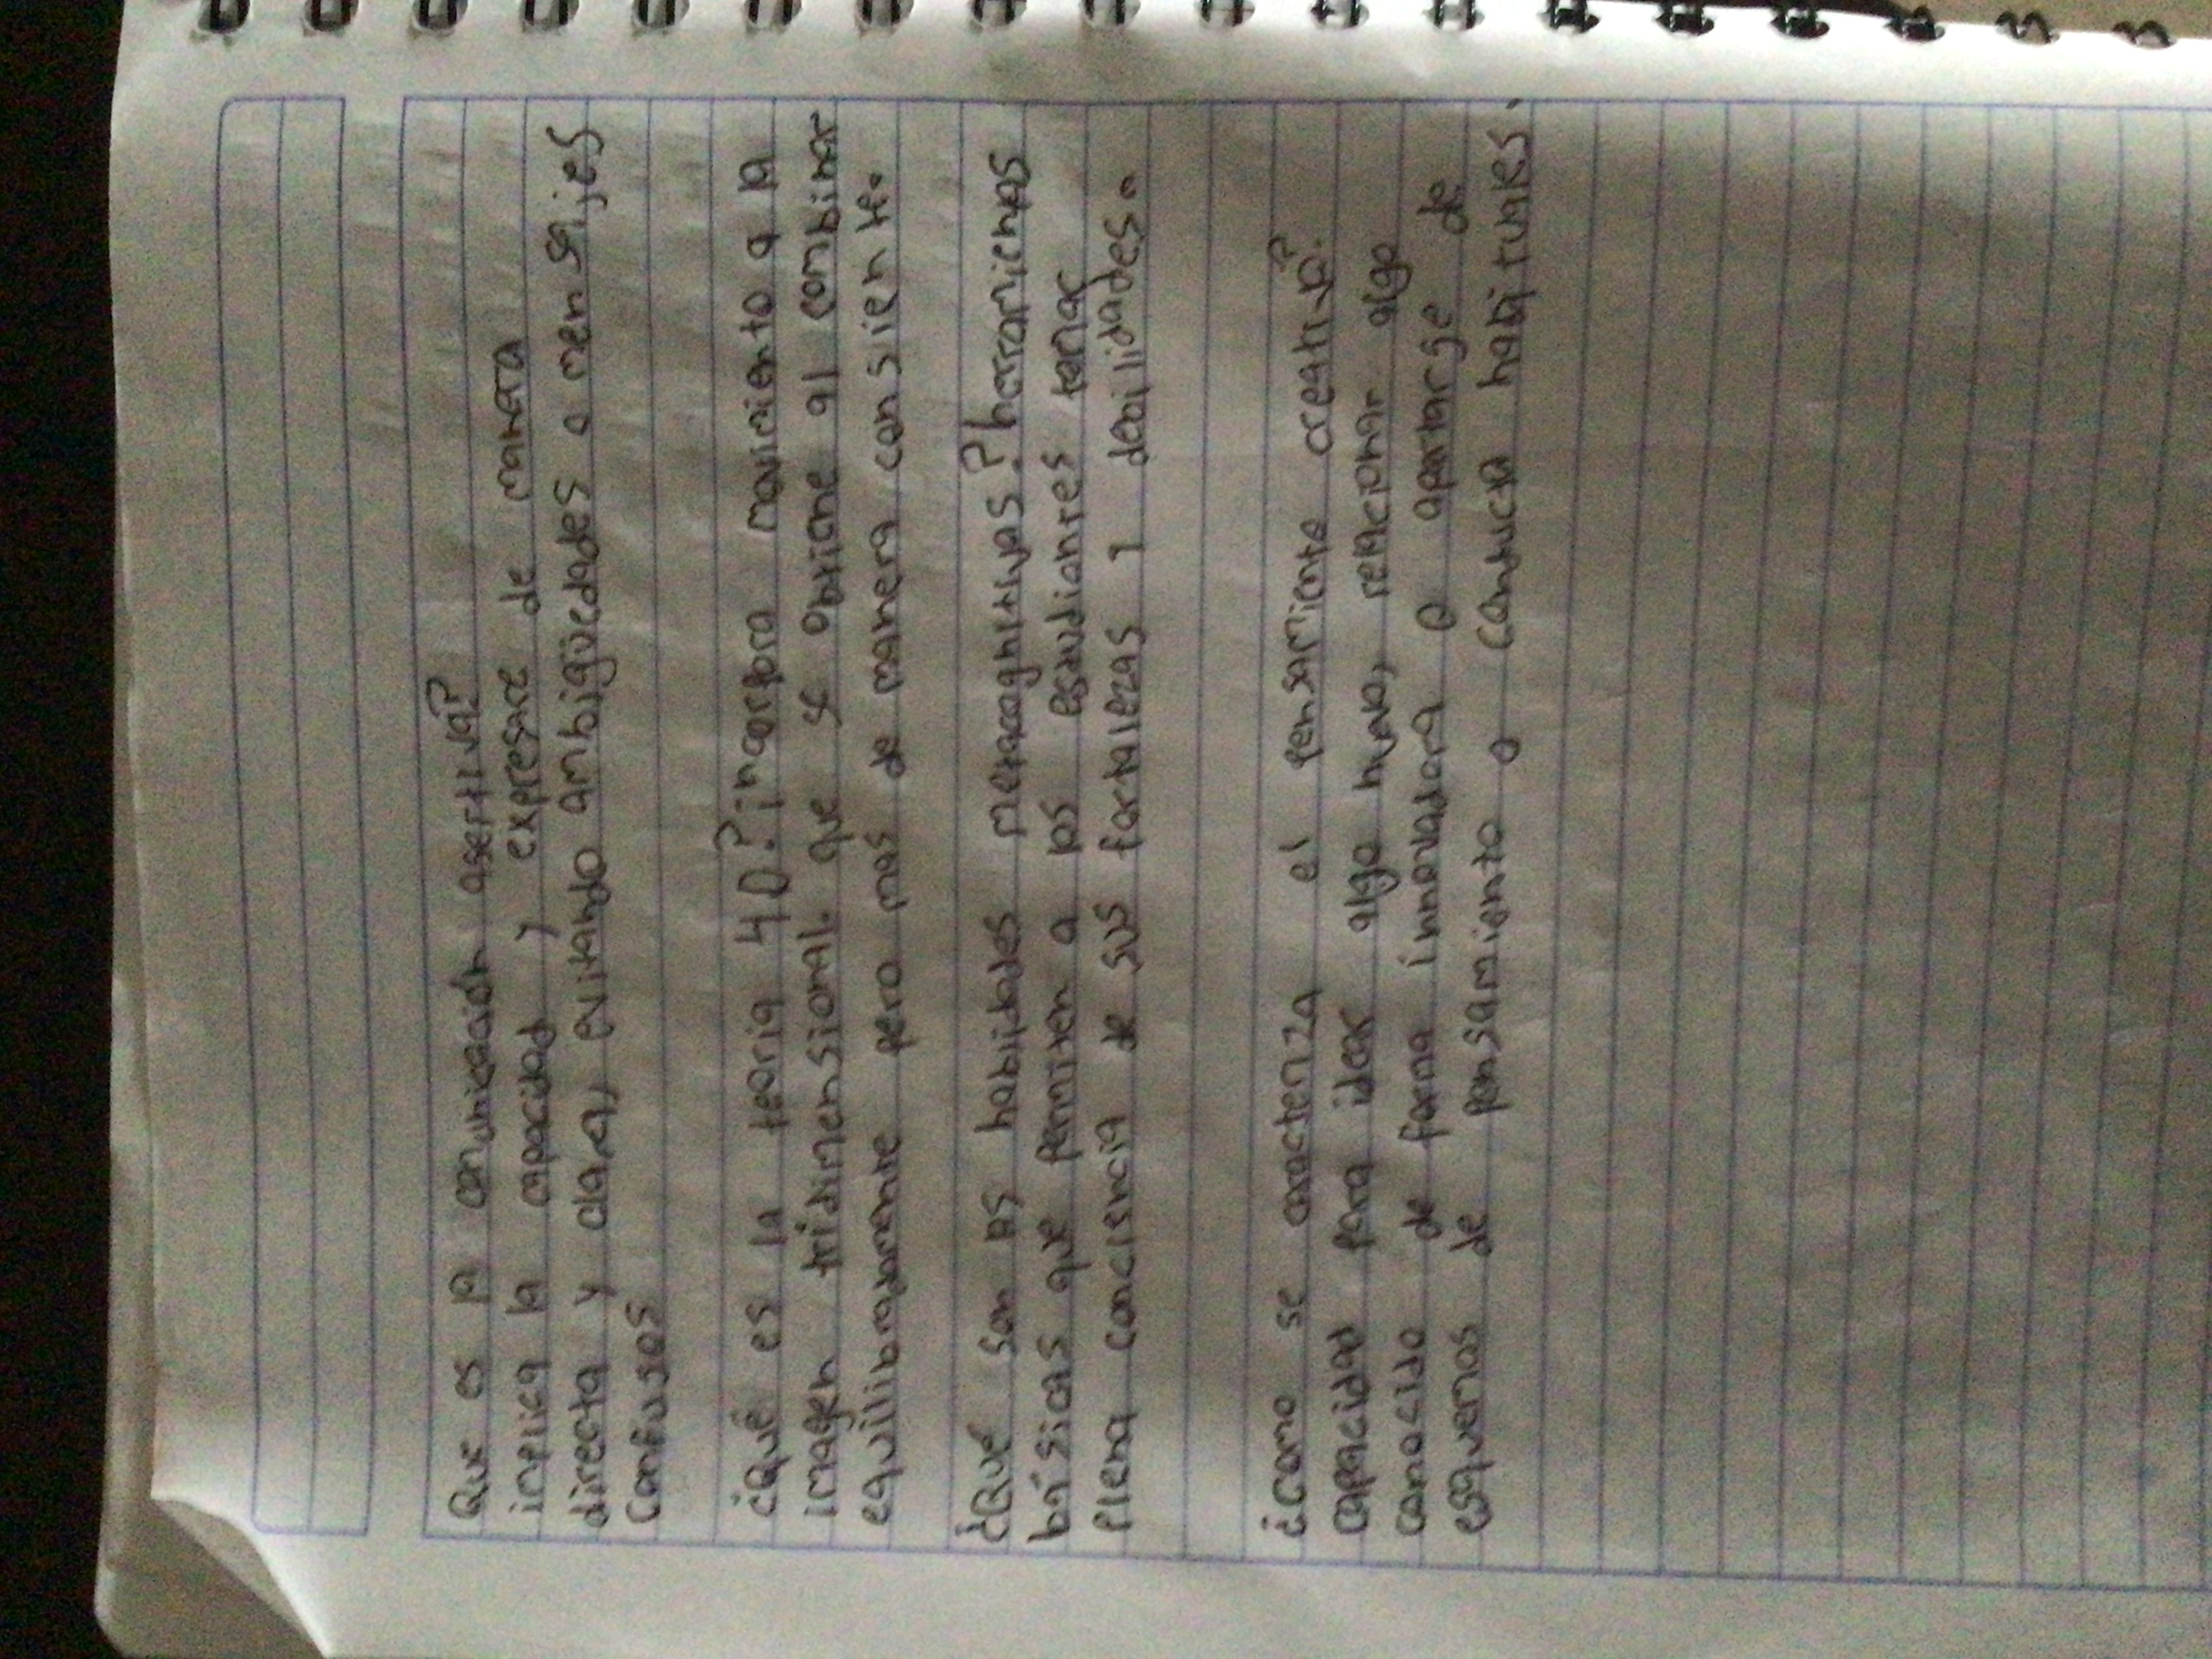 Que es la comunicación asertiva?
implica la capacidad y expresare de manera
directa y clara, evitando ambigüedades o mensajes
confusos
¿qué es la teoria 4D? incorpora movimiento a la
imagen tridimensional que se obtiene al combinar
equilibradamente pero mas de manera consiente.
¿Qué son las hablidades metacognitivas? herramientas
básicas que permiten a los esaudiantes tomar
Plena conciencia de sus fortalezas y debilidades.
¿como se caracteriza el pensamiento creativo?
capacidad para idear algo nuevo, relacionar algo
conocido de forma innovadora o apartarse de
esquemas de pensamiento o conducta habituales.